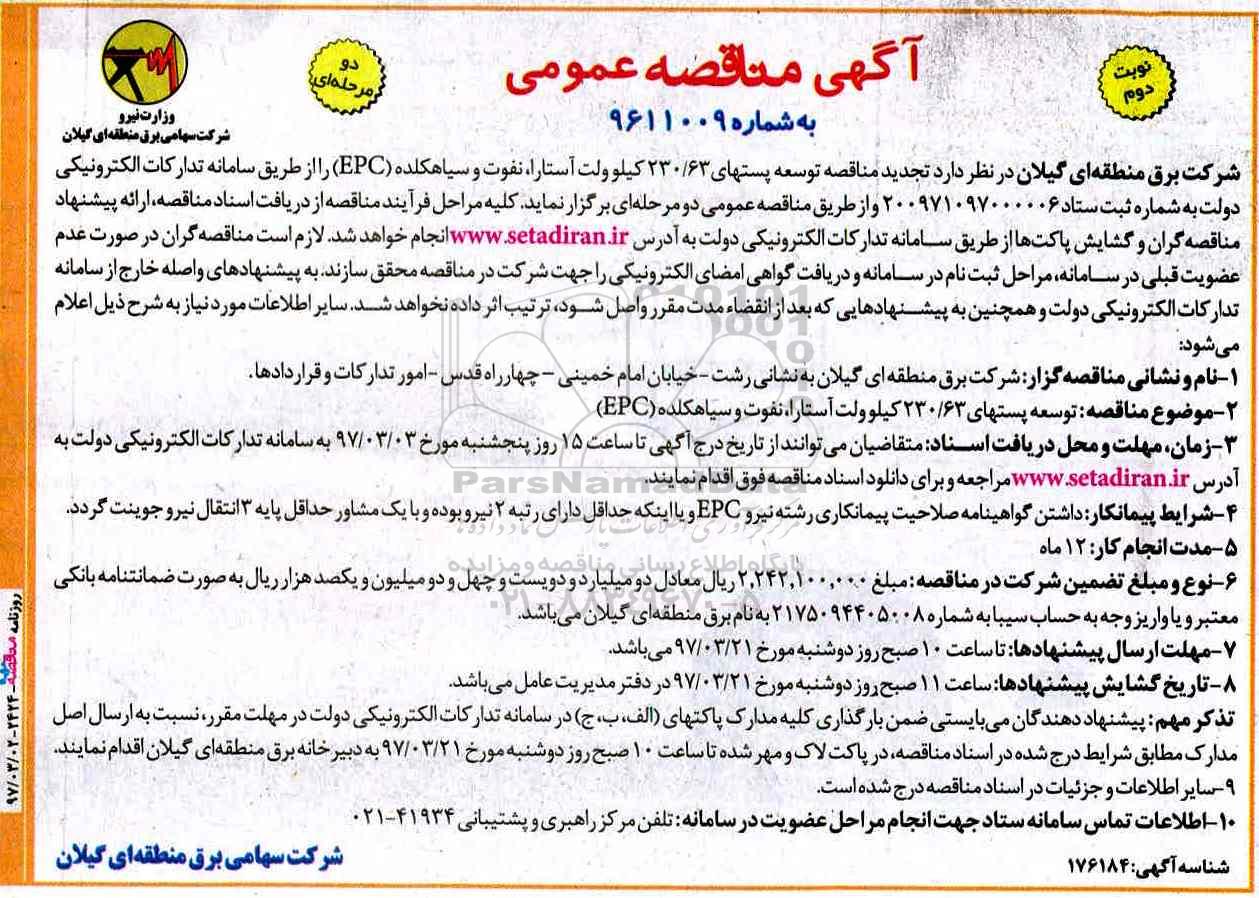 آگهی مناقصه عمومی
به شماره ۹۶۱۱۰۰۹
نوبت دوم
دو مرحله‌ای
وزارت نیرو
شرکت سهامی برق منطقه‌ای گیلان
شرکت برق منطقه‌ای گیلان در نظر دارد تجدید مناقصه توسعه پستهای ۲۳۰/۶۳ کیلو ولت آستارا، نفوت و سیاهکلده (EPC) را از طریق سامانه تدارکات الکترونیکی
دولت به شماره ثبت ستاد ۲۰۰۹۷۱۰۹۷۰۰۰۰۰۶ و از طریق مناقصه عمومی دو مرحله‌ای برگزار نماید. کلیه مراحل فرآیند مناقصه از دریافت اسناد مناقصه، ارائه پیشنهاد
مناقصه‌گران و گشایش پاکت‌ها از طریق سامانه تدارکات الکترونیکی دولت به آدرس www.setadiran.ir انجام خواهد شد. لازم است مناقصه‌گران در صورت عدم
عضویت قبلی در سامانه، مراحل ثبت نام در سامانه و دریافت گواهی امضای الکترونیکی را جهت شرکت در مناقصه محقق سازند. به پیشنهادهای واصله خارج از سامانه
تدارکات الکترونیکی دولت و همچنین به پیشنهادهایی که بعد از انقضاء مدت مقرر واصل شود، ترتیب اثر داده نخواهد شد. سایر اطلاعات مورد نیاز به شرح ذیل اعلام
می‌شود:
۱-نام و نشانی مناقصه‌گزار: شرکت برق منطقه ای گیلان به نشانی رشت -خیابان امام خمینی – چهارراه قدس -امور تدارکات و قراردادها.
۲-موضوع مناقصه: توسعه پستهای ۲۳۰/۶۳ کیلو ولت آستارا، نفوت و سیاهکلده (EPC)
۳-زمان، مهلت و محل دریافت اسناد: متقاضیان می‌توانند از تاریخ درج آگهی تا ساعت ۱۵ روز پنجشنبه مورخ ۹۷/۰۳/۰۳ به سامانه تدارکات الکترونیکی دولت به
آدرس www.setadiran.ir مراجعه و برای دانلود اسناد مناقصه فوق اقدام نمایند.
۴-شرایط پیمانکار: داشتن گواهینامه صلاحیت پیمانکاری رشته نیرو EPC و یا اینکه حداقل دارای رتبه ۲ نیرو بوده و با یک مشاور حداقل پایه ۳ انتقال نیرو جوینت گردد.
۵-مدت انجام کار: ۱۲ ماه
۶-نوع و مبلغ تضمین شرکت در مناقصه: مبلغ ۲,۲۴۲,۱۰۰,۰۰۰ ریال معادل دو میلیارد و دویست و چهل و دو میلیون و یکصد هزار ریال به صورت ضمانتنامه بانکی
معتبر و یا واریز وجه به حساب سیبا به شماره ۲۱۷۵۰۹۴۴۰۵۰۰۸ به نام برق منطقه‌ای گیلان می‌باشد.
۷-مهلت ارسال پیشنهادها: تا ساعت ۱۰ صبح روز دوشنبه مورخ ۹۷/۰۳/۲۱ می‌باشد.
۸-تاریخ گشایش پیشنهادها: ساعت ۱۱ صبح روز دوشنبه مورخ ۹۷/۰۳/۲۱ در دفتر مدیریت عامل می‌باشد.
تذکر مهم: پیشنهاد دهندگان می‌بایستی ضمن بارگذاری کلیه مدارک پاکتهای (الف، ب، ج) در سامانه تدارکات الکترونیکی دولت در مهلت مقرر، نسبت به ارسال اصل
مدارک مطابق شرایط درج شده در اسناد مناقصه، در پاکت لاک و مهر شده تا ساعت ۱۰ صبح روز دوشنبه مورخ ۹۷/۰۳/۲۱ به دبیرخانه برق منطقه‌ای گیلان اقدام نمایند.
۹-سایر اطلاعات و جزئیات در اسناد مناقصه درج شده است.
۱۰-اطلاعات تماس سامانه ستاد جهت انجام مراحل عضویت در سامانه: تلفن مرکز راهبری و پشتیبانی ۴۱۹۳۴-۰۲۱
شناسه آگهی: ۱۷۶۱۸۴
شرکت سهامی برق منطقه‌ای گیلان
روزنامه مناقصه -۲۴۲۴-۹۷/۰۳/۰۲
ParsNamadData
پایگاه اطلاع رسانی مناقصه و مزایده
۰۲۱-۸۸۳۴۹۶۷۰-۵